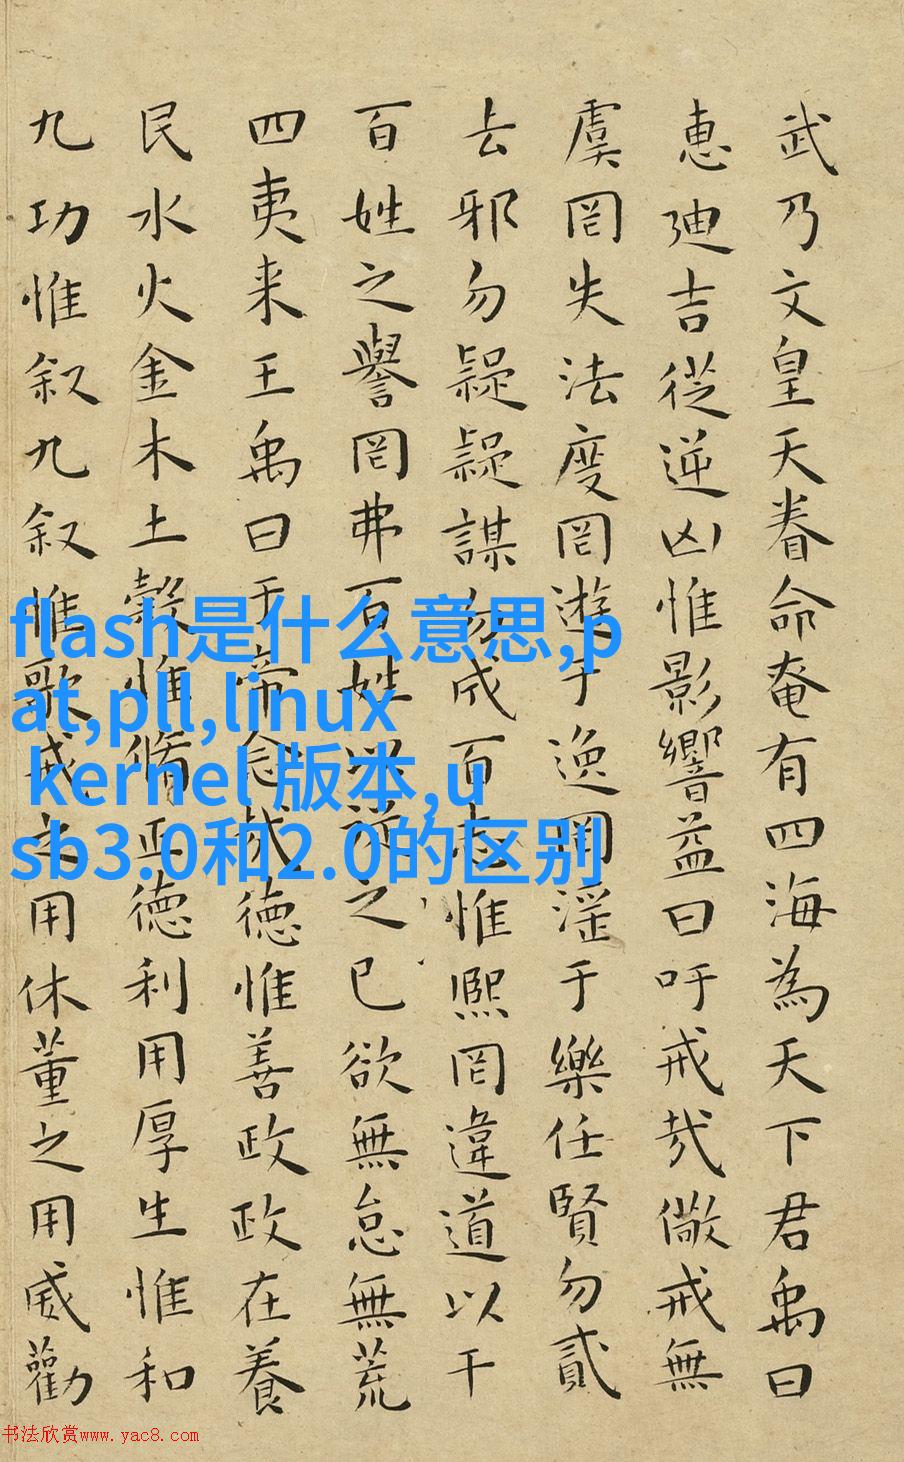 武乃文皇天眷命奄有四海為天下君禹曰
惠迪吉從逆凶惟影響益曰吁戒哉儆戒無
虞罔失法度罔遊于逸罔淫于樂任賢勿貳
去邪勿疑疑謀勿成百志惟熙罔違道以干
百姓之譽罔弗百姓以從之已欲無怠無荒
四夷来王禹曰于帝念哉德惟善政政在養
民水火金木土穀惟脩正德利用厚生惟和
九功惟叙九叙惟歌戒之用休董之用威勸
flash是什么意思,p
at,pll,linux
kernel 版本,u
sb3.0和2.0的区别
书法欣赏www.yac8.com